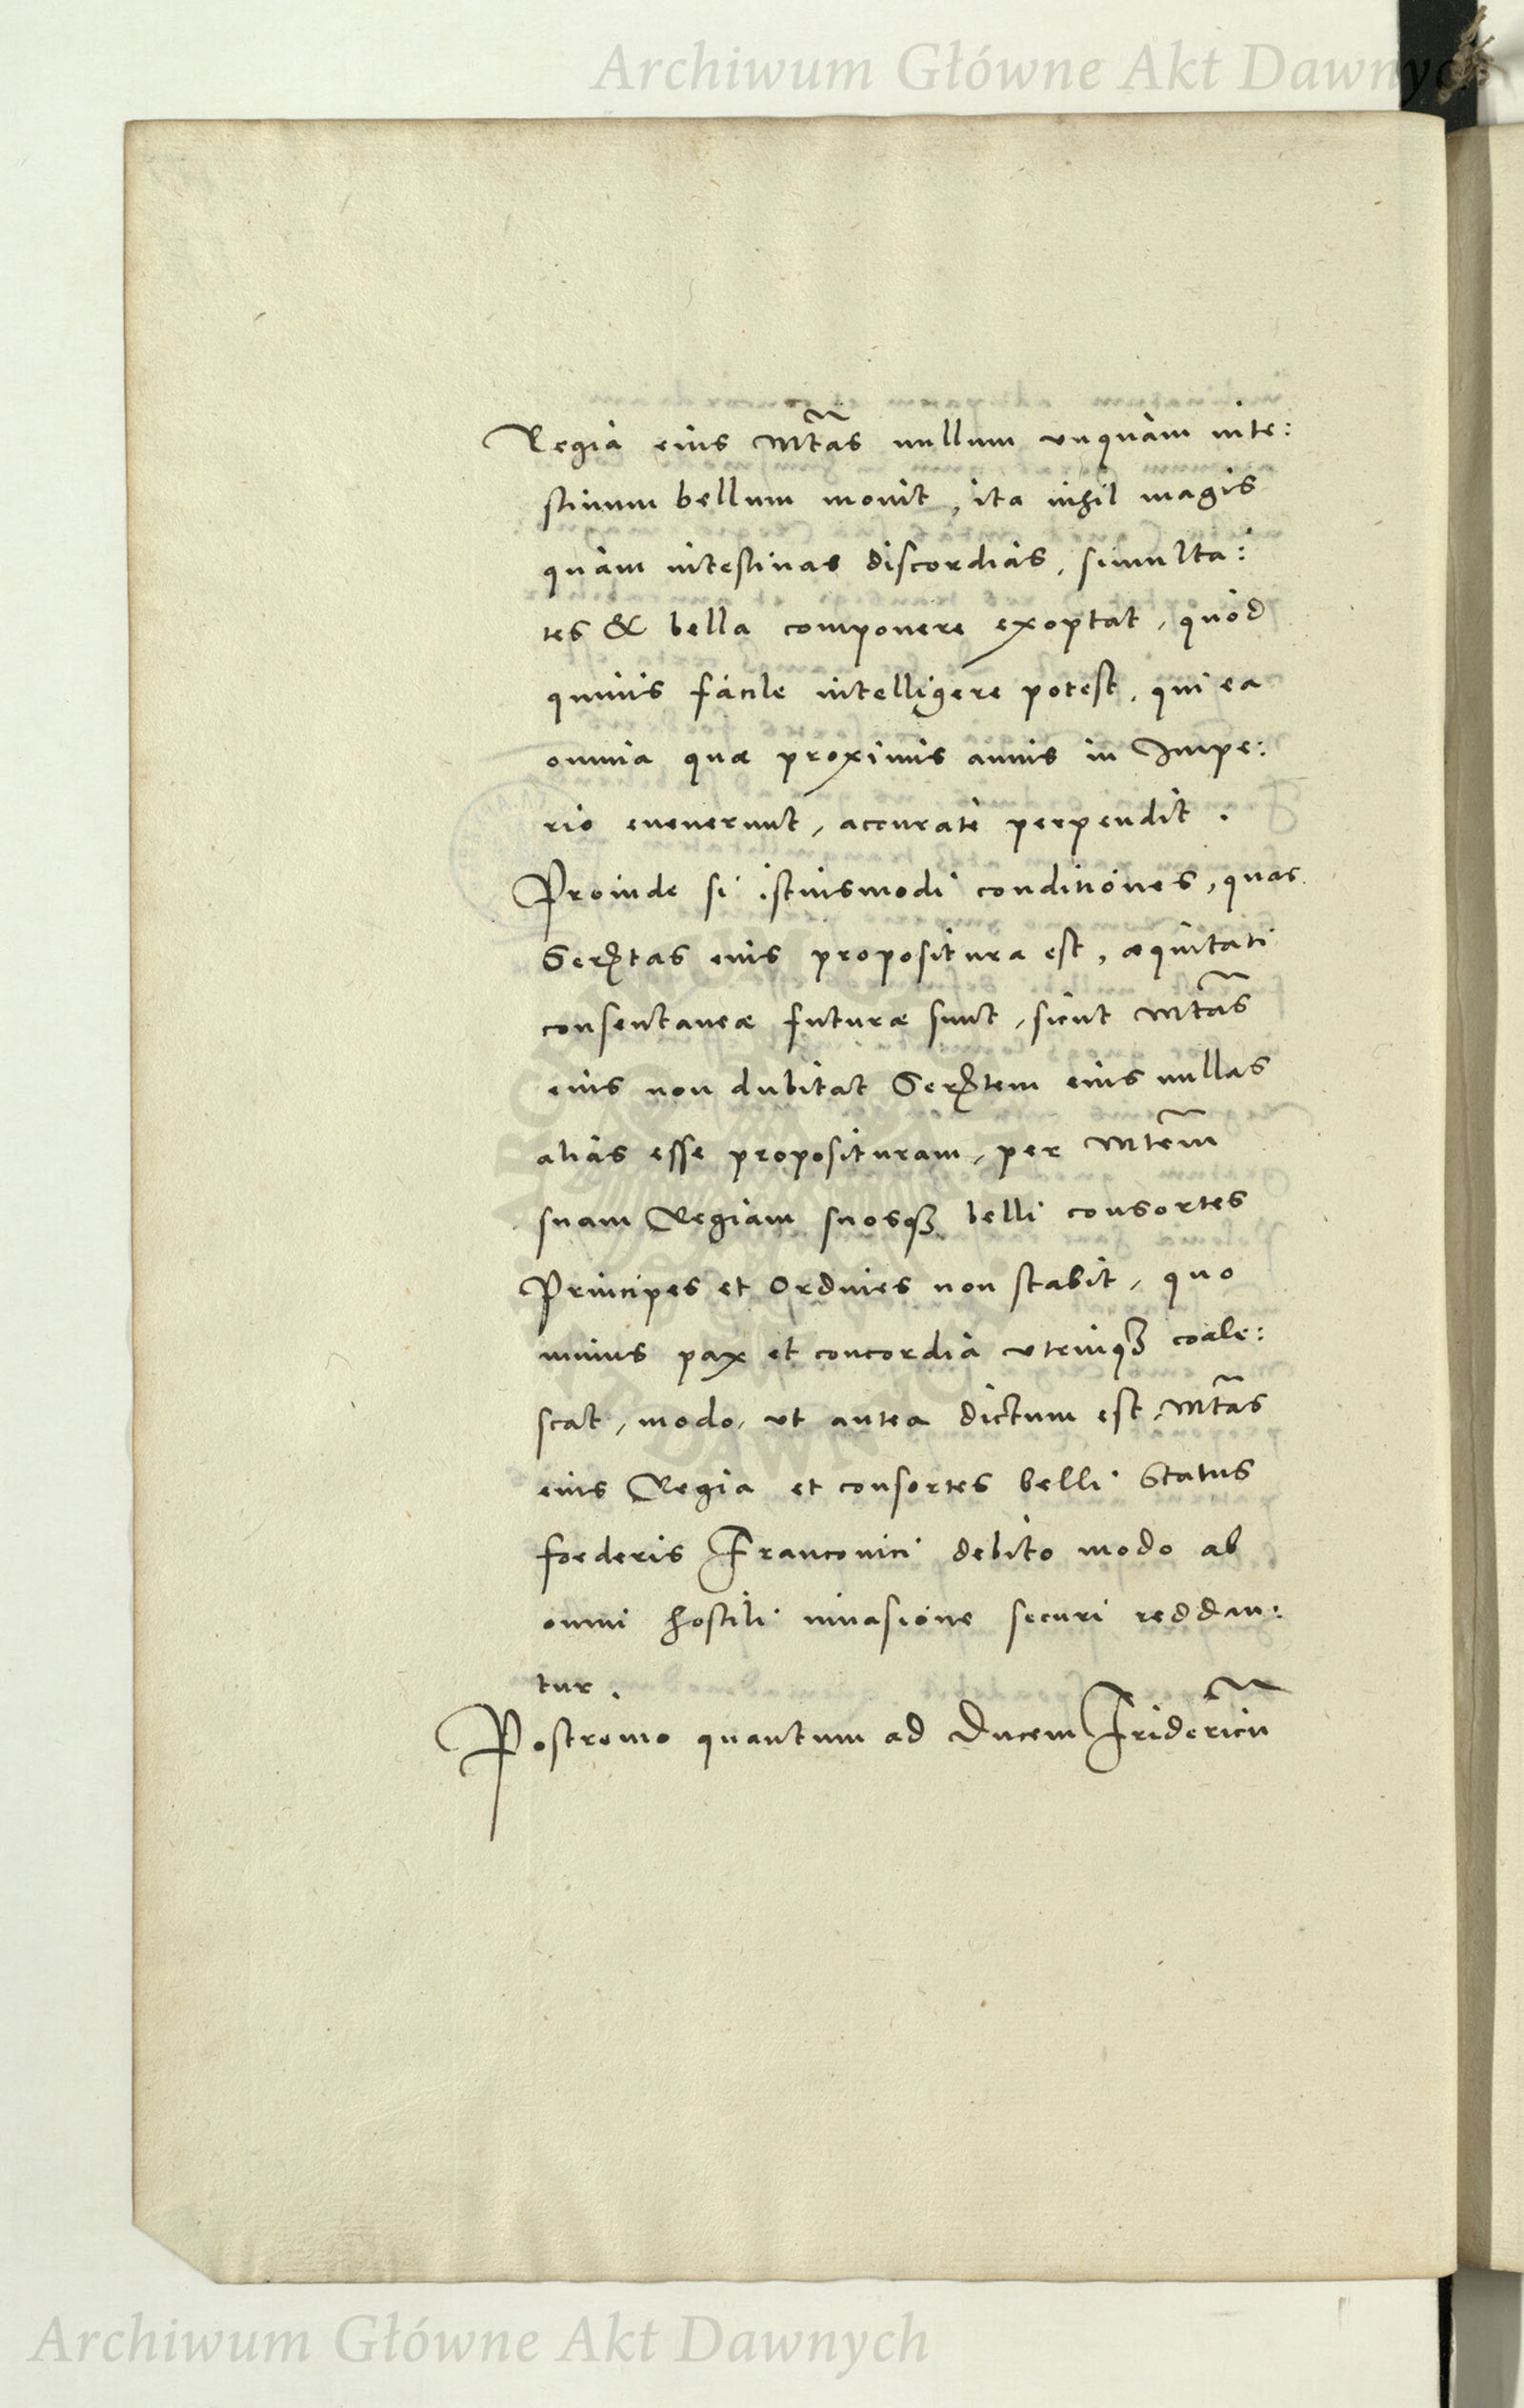 Archiwum Główne Akt Dawnych
Regia eius Mtas nullum vnquam inte:
stinum bellum mouit, ita nihil magis
quàm intestinas discordias, simulta:
tes & bella componere exoptat, quod
quiuis facile intelligere potest, qui ea
omnia quæ proximis annis in Impe:
rio euenerunt, accurate perpendit.
Proinde si istiusmodi conditiones, quas
Serntas eius propositura est, æquitati
consentaneæ futuræ sunt, sicut Mtas
eius non dubitat Serntem eius nullas
alias esse proposituram, per Mtem
suam Regiam suosq3 belli consortes
Principes et Ordines non stabit, quo
minus pax et concordia vtrinq3 coale:
scat, modo, vt antea dictum est, Mtas
eius Regia et consortes belli Status
foederis Franconici debito modo ab
omni hostili inuasione securi reddan:
tur.
Postremo quantum ad Ducem Fridericu
Archiwum Główne Akt Dawnych